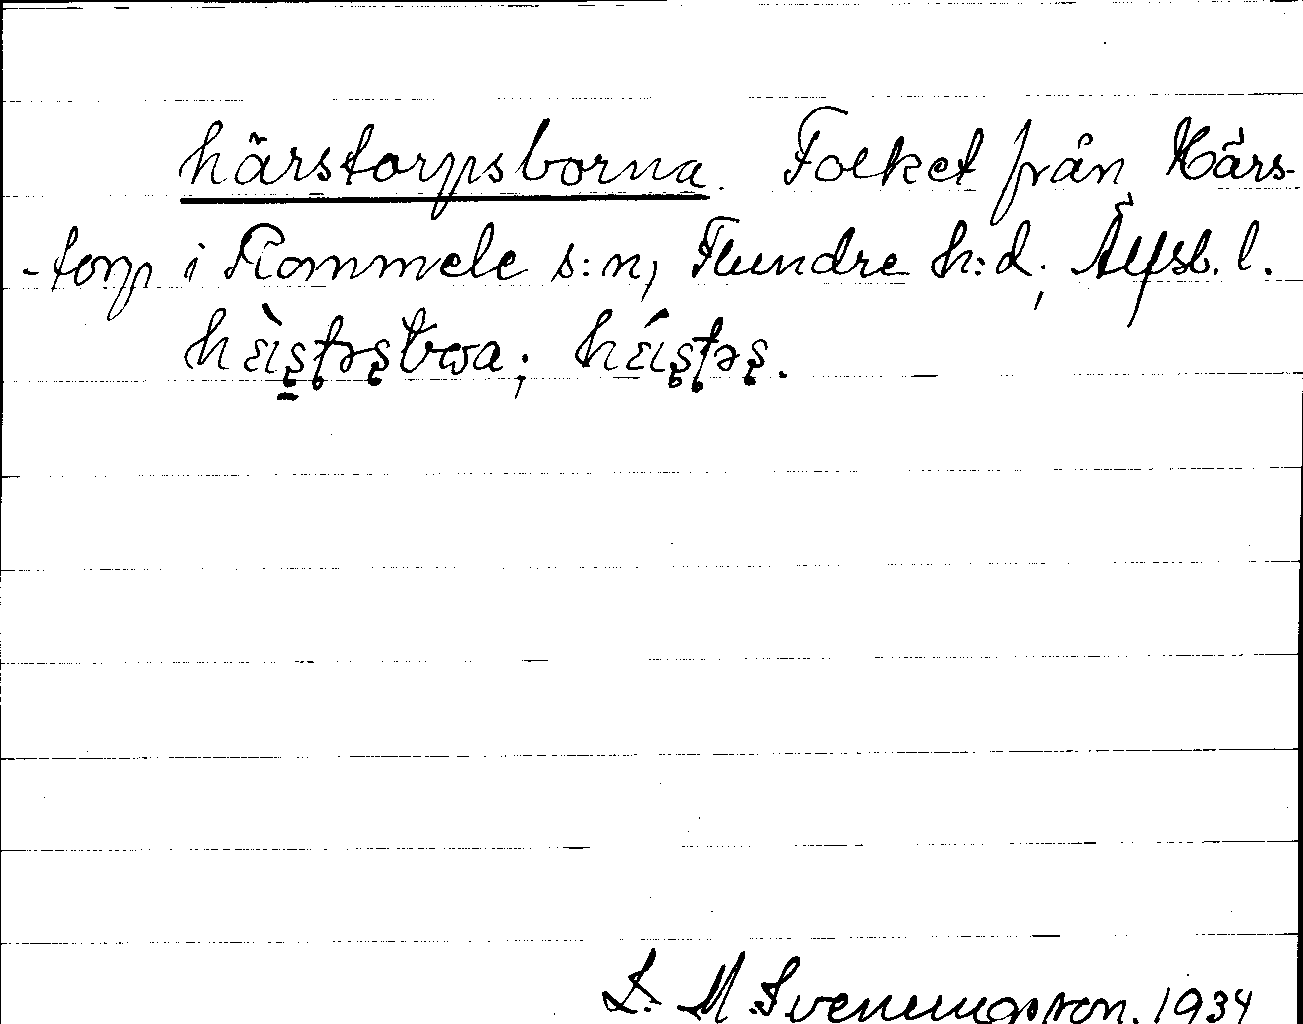 härstorpsborna. Folket från Härs-
-torp i Rommele s:n, Flundre h:d, Älfsb. l.
hὲıʂʈəʂbωa; hέıʂʈəʂ.
D. M. Svenningsson. 1934